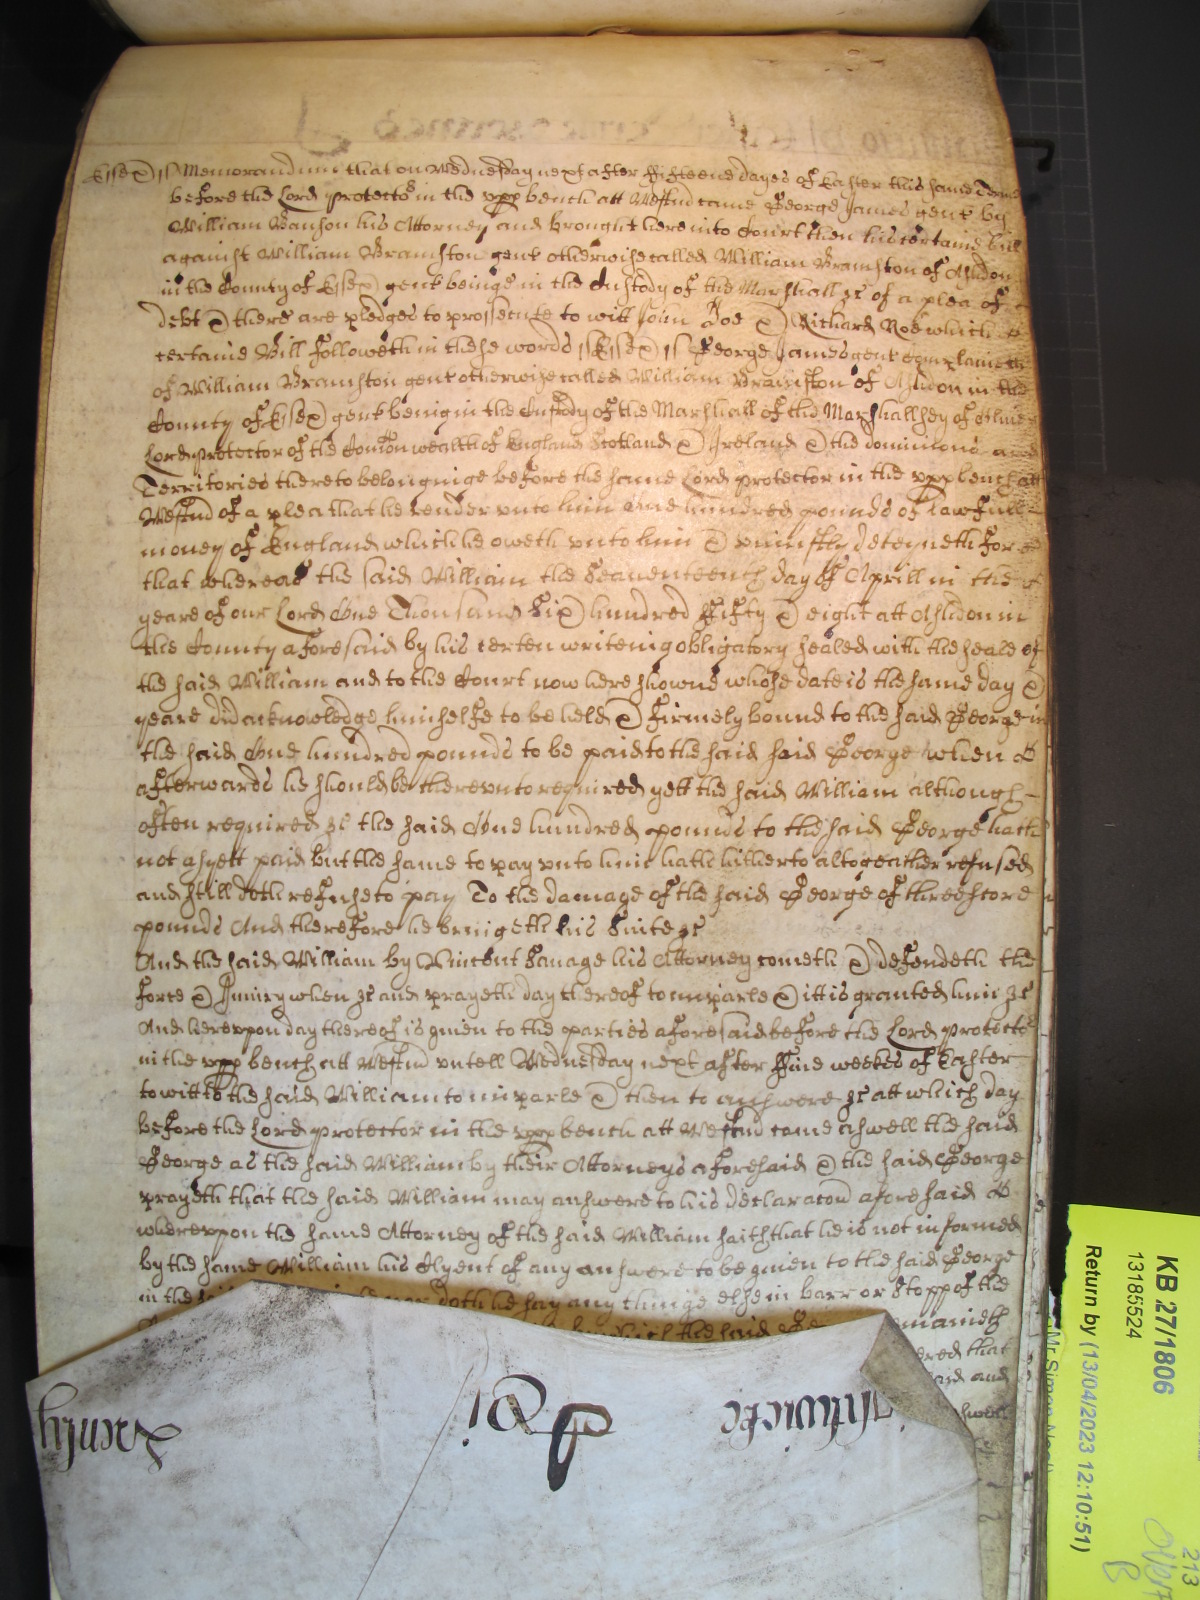 Essex ss Memorandum that on Wednesday next after fifteene dayes of Easter this same Terme
before the Lord protector in the upp bench att Westm came George James gent by
William Banson his Attorney and brought here into Court then his certaine bill
against William Bramston gent otherwise called William Bramston of Ashdon
in the County of Essex gent beinge in the Custody of the Marshall &c of a plea of
debt & there are pledges to prossecute to witt John Doe & Richard Roe which
certaine Bill followeth in these words ss Essex ss George James gent complaineth
of William Bramston gent otherwise called William Bramston of Ashdon in the
County of Essex gent being in the Custody of the Marshall of the Marshallsey of Oliver
Lord protector of the Comonwealth of England Scotland & Ireland & the dominions and
Territories thereto belonginge before the same Lord protector in the upp bench att
Westm of a plea that he render unto him one hundred pounds of lawfull
money of England which he oweth unto him & uniustly deteyneth for
that whereas the said William the Seaventeenth day of Aprill in the
yeare of our Lord One Thousand Six hundred fifty & eight att Ashdon in
the County aforesaid by his certen writeinge obligatory sealed with the seale of
the said William and to the Court now here showne whose date is the same day &
yeare did acknowledge himselfe to be held & firmely bound to the said George in
the said One hundred pounds to be paid to the said said George when &
afterwards he should be thereunto required yett the said William although
often required &c the said One hundred pounds to the said George hath
not as yett paid but the same to pay unto him hath hitherto altogeather refused
and still doth refuse to pay To the damage of the said George of threescore
pounds And therefore he bringeth his Suite &c
And the said William by Vincent Savage his Attorney cometh & defendeth the
force & Iniury when &c and prayeth day thereof to imparle & itt is granted him &c
And hereupon day thereof is given to the parties aforesaid before the Lord protector
in the upp bench att Westm untell Wednesday next after five weekes of Easter
to witt to the said William to imparle & then to answere &c att which day
before the Lord protector in the upp bench att Westm came aswell the said
George as the said William by their Attorneys aforesaid & the said George
prayeth that the said William may answere to his declaracon aforesaid &
whereupon the same Attorney of the said William saith that he is not informed
by the same William his Clyent of any answere to be given to the said George
in the doth he say any thinge else in barr or Stopp of the
which the said
that
and
aswell
KB 27/1806
13185524
Return by (13/04/2023 12:10:51)
Mr Simon Neal
213